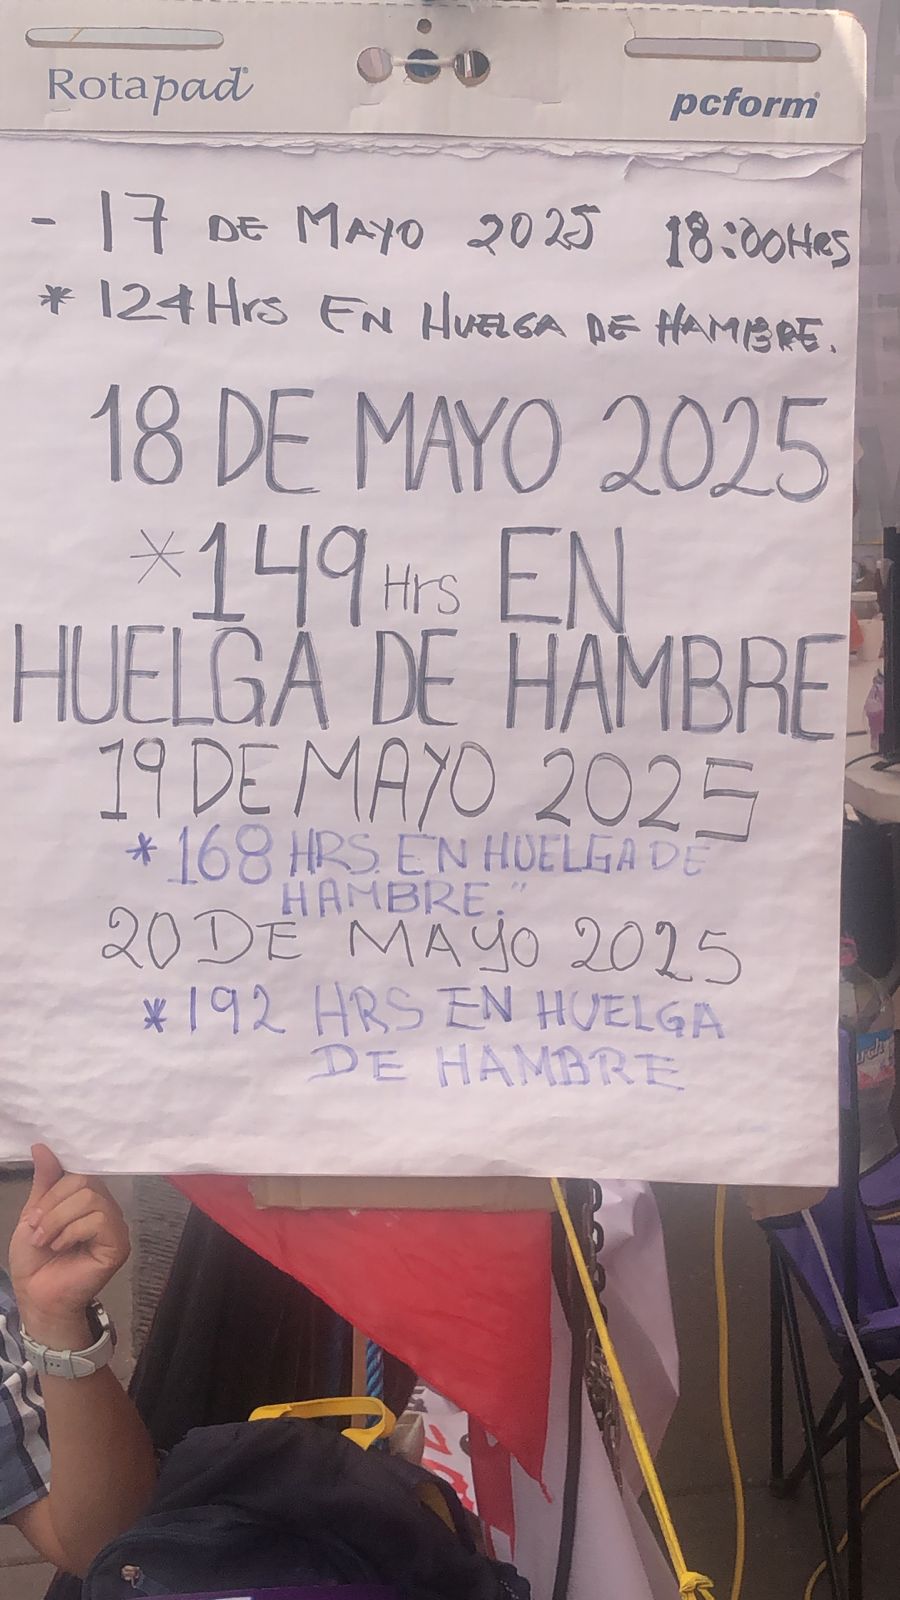 Rotapad
pcform
- 17 DE MAYO 2025 18:00HRS
* 124Hrs EN HUELGA DE HAMBRE.
18 DE MAYO 2025
*149Hrs EN
HUELGA DE HAMBRE
19 DE MAYO 2025
*168 HRS. EN HUELGA DE
HAMBRE."
20 DE MAYO 2025
*192 HRS EN HUELGA
DE HAMBRE